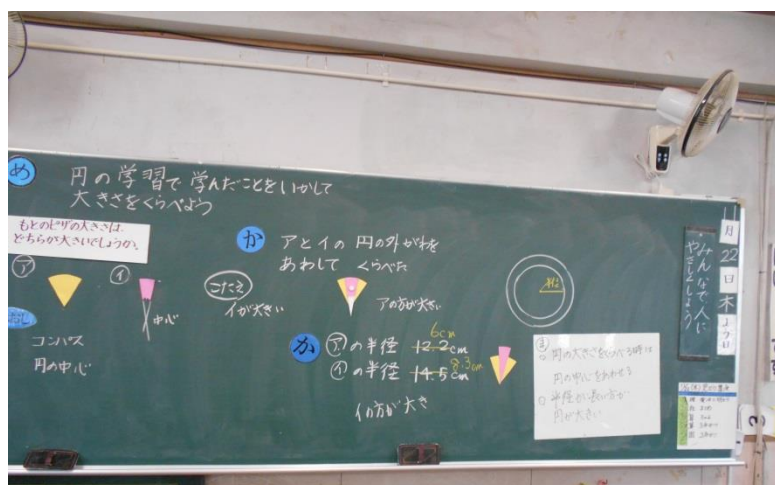 め
円の学習で学んだことをいかして
大きさをくらべよう
もとのピザの大きさは、
どちらが大きいでしょうか。
ア
イ
中心
コンパス
円の中心
か
アとイの円の外がわを
あわして くらべた
こたえ
イが大きい
アの方が大きい
か
アの半径 12.2cm 6cm
イの半径 14.5cm 8.3cm
イの方が大き
半径
ま
円の大きさをくらべる時は
円の中心をあわせる
半径が長い方が
円が大きい
みんなで人に
やさしくしよう
月
22
日
木